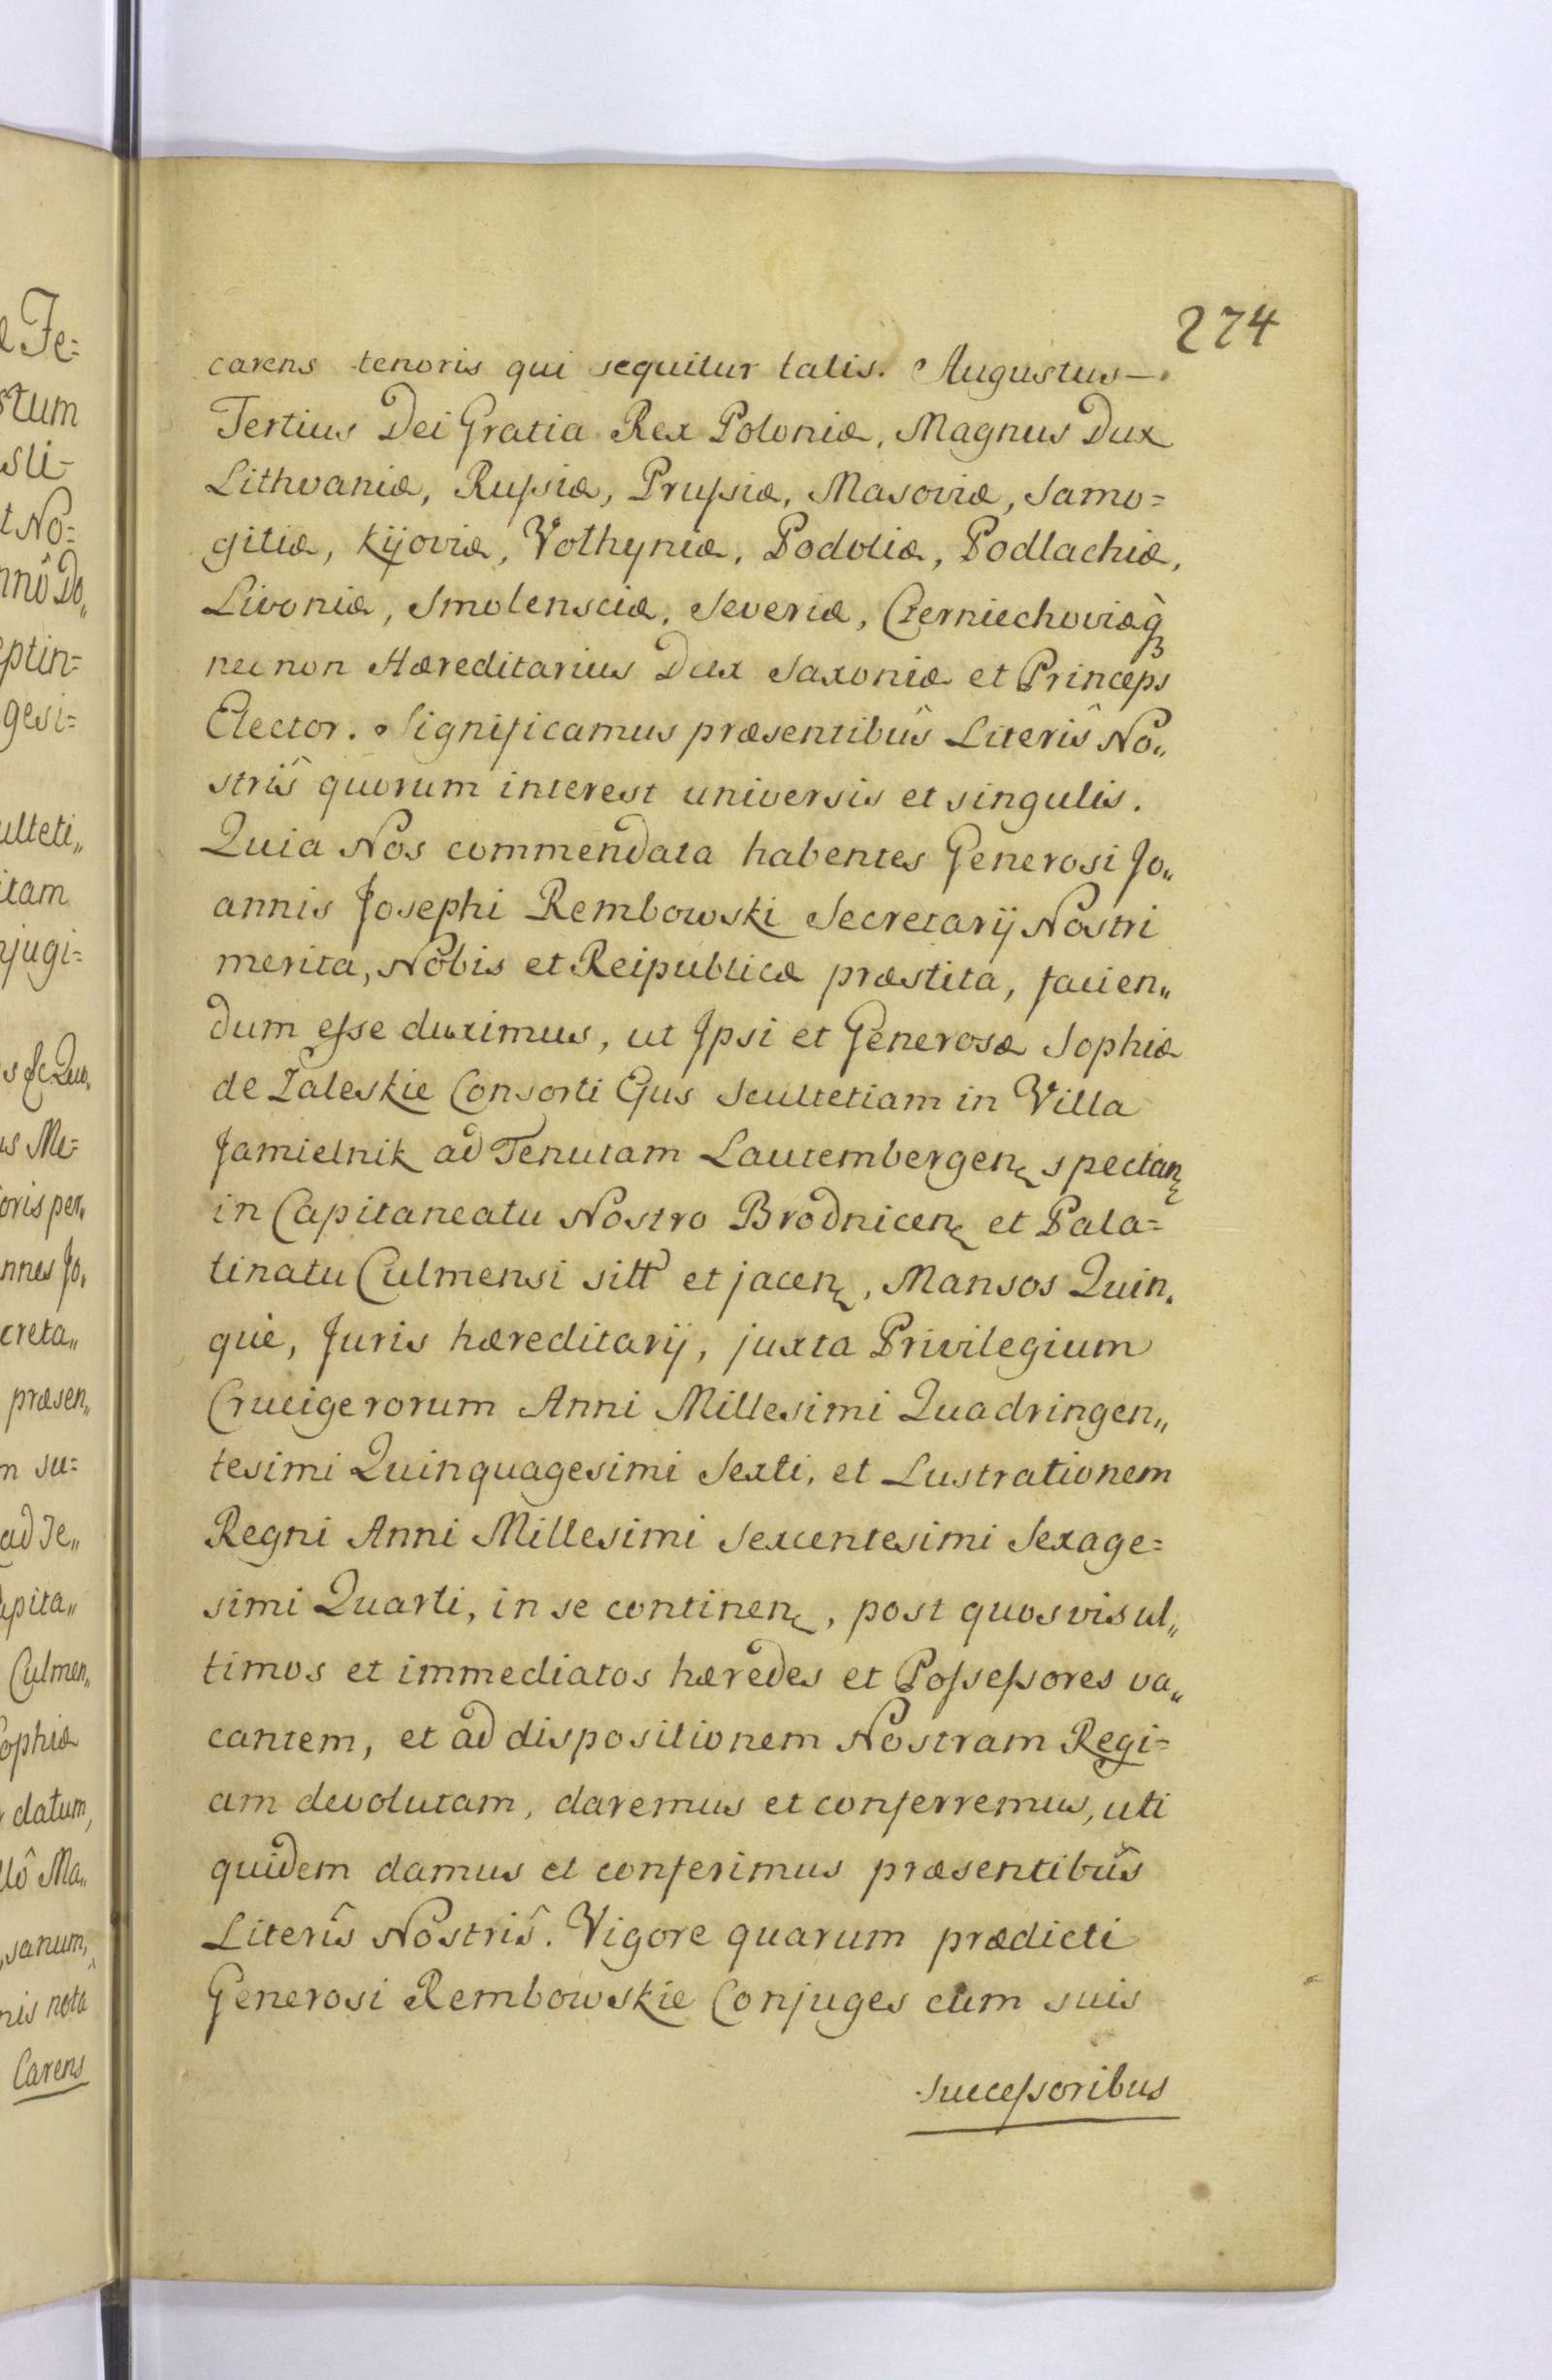 274
carens tenoris qui sequitur talis. Augustus —
Tertius Dei Gratia Rex Poloniæ, Magnus Dux
Lithvaniæ, Rußiæ, Prußiæ, Masoviæ, Samo=
gitiæ, Kijoviæ, Volhyniæ, Podoliæ, Podlachiæ,
Livoniæ, Smolensciæ, Severiæ, Czerniechoviæq̀
nec non Hæreditarius Dux Saxoniæ et Princeps
Elector. Significamus præsentibûs Literîs No„
strîs quorum interest universis et singulis.
Quia Nos commendata habentes Generosi Jo„
annis Josephi Rembowski Secretarij Nostri
merita, Nobis et Reipublicæ præstita, facien„
dum eße duximus, ut Ipsi et Generosæ Sophiæ
de Zaleskie Consorti Ejus Scultetiam in Villa
Jamielnik ad Tenutam Lautembergen spectan
in Capitaneatu Nostro Brodnicen et Pala=
tinatu Culmensi sitt et jacen, Mansos Quin„
que, Juris hæreditarij, juxta Privilegium
Crucigerorum Anni Millesimi Quadringen„
tesimi Quinquagesimi Sexti, et Lustrationem
Regni Anni Millesimi Sexcentesimi Sexage=
simi Quarti, in se continen, post quosvis ul„
timos et immediatos hæredes et Poßeßores va„
cantem, et ad dispositionem Nostram Regi=
am devolutam, daremus et conferremus, uti
quidem damus et conferimus præsentibûs
Literîs Nostrîs. Vigore quarum prædicti
Generosi Rembowskie Conjuges cum suis
succeßoribus